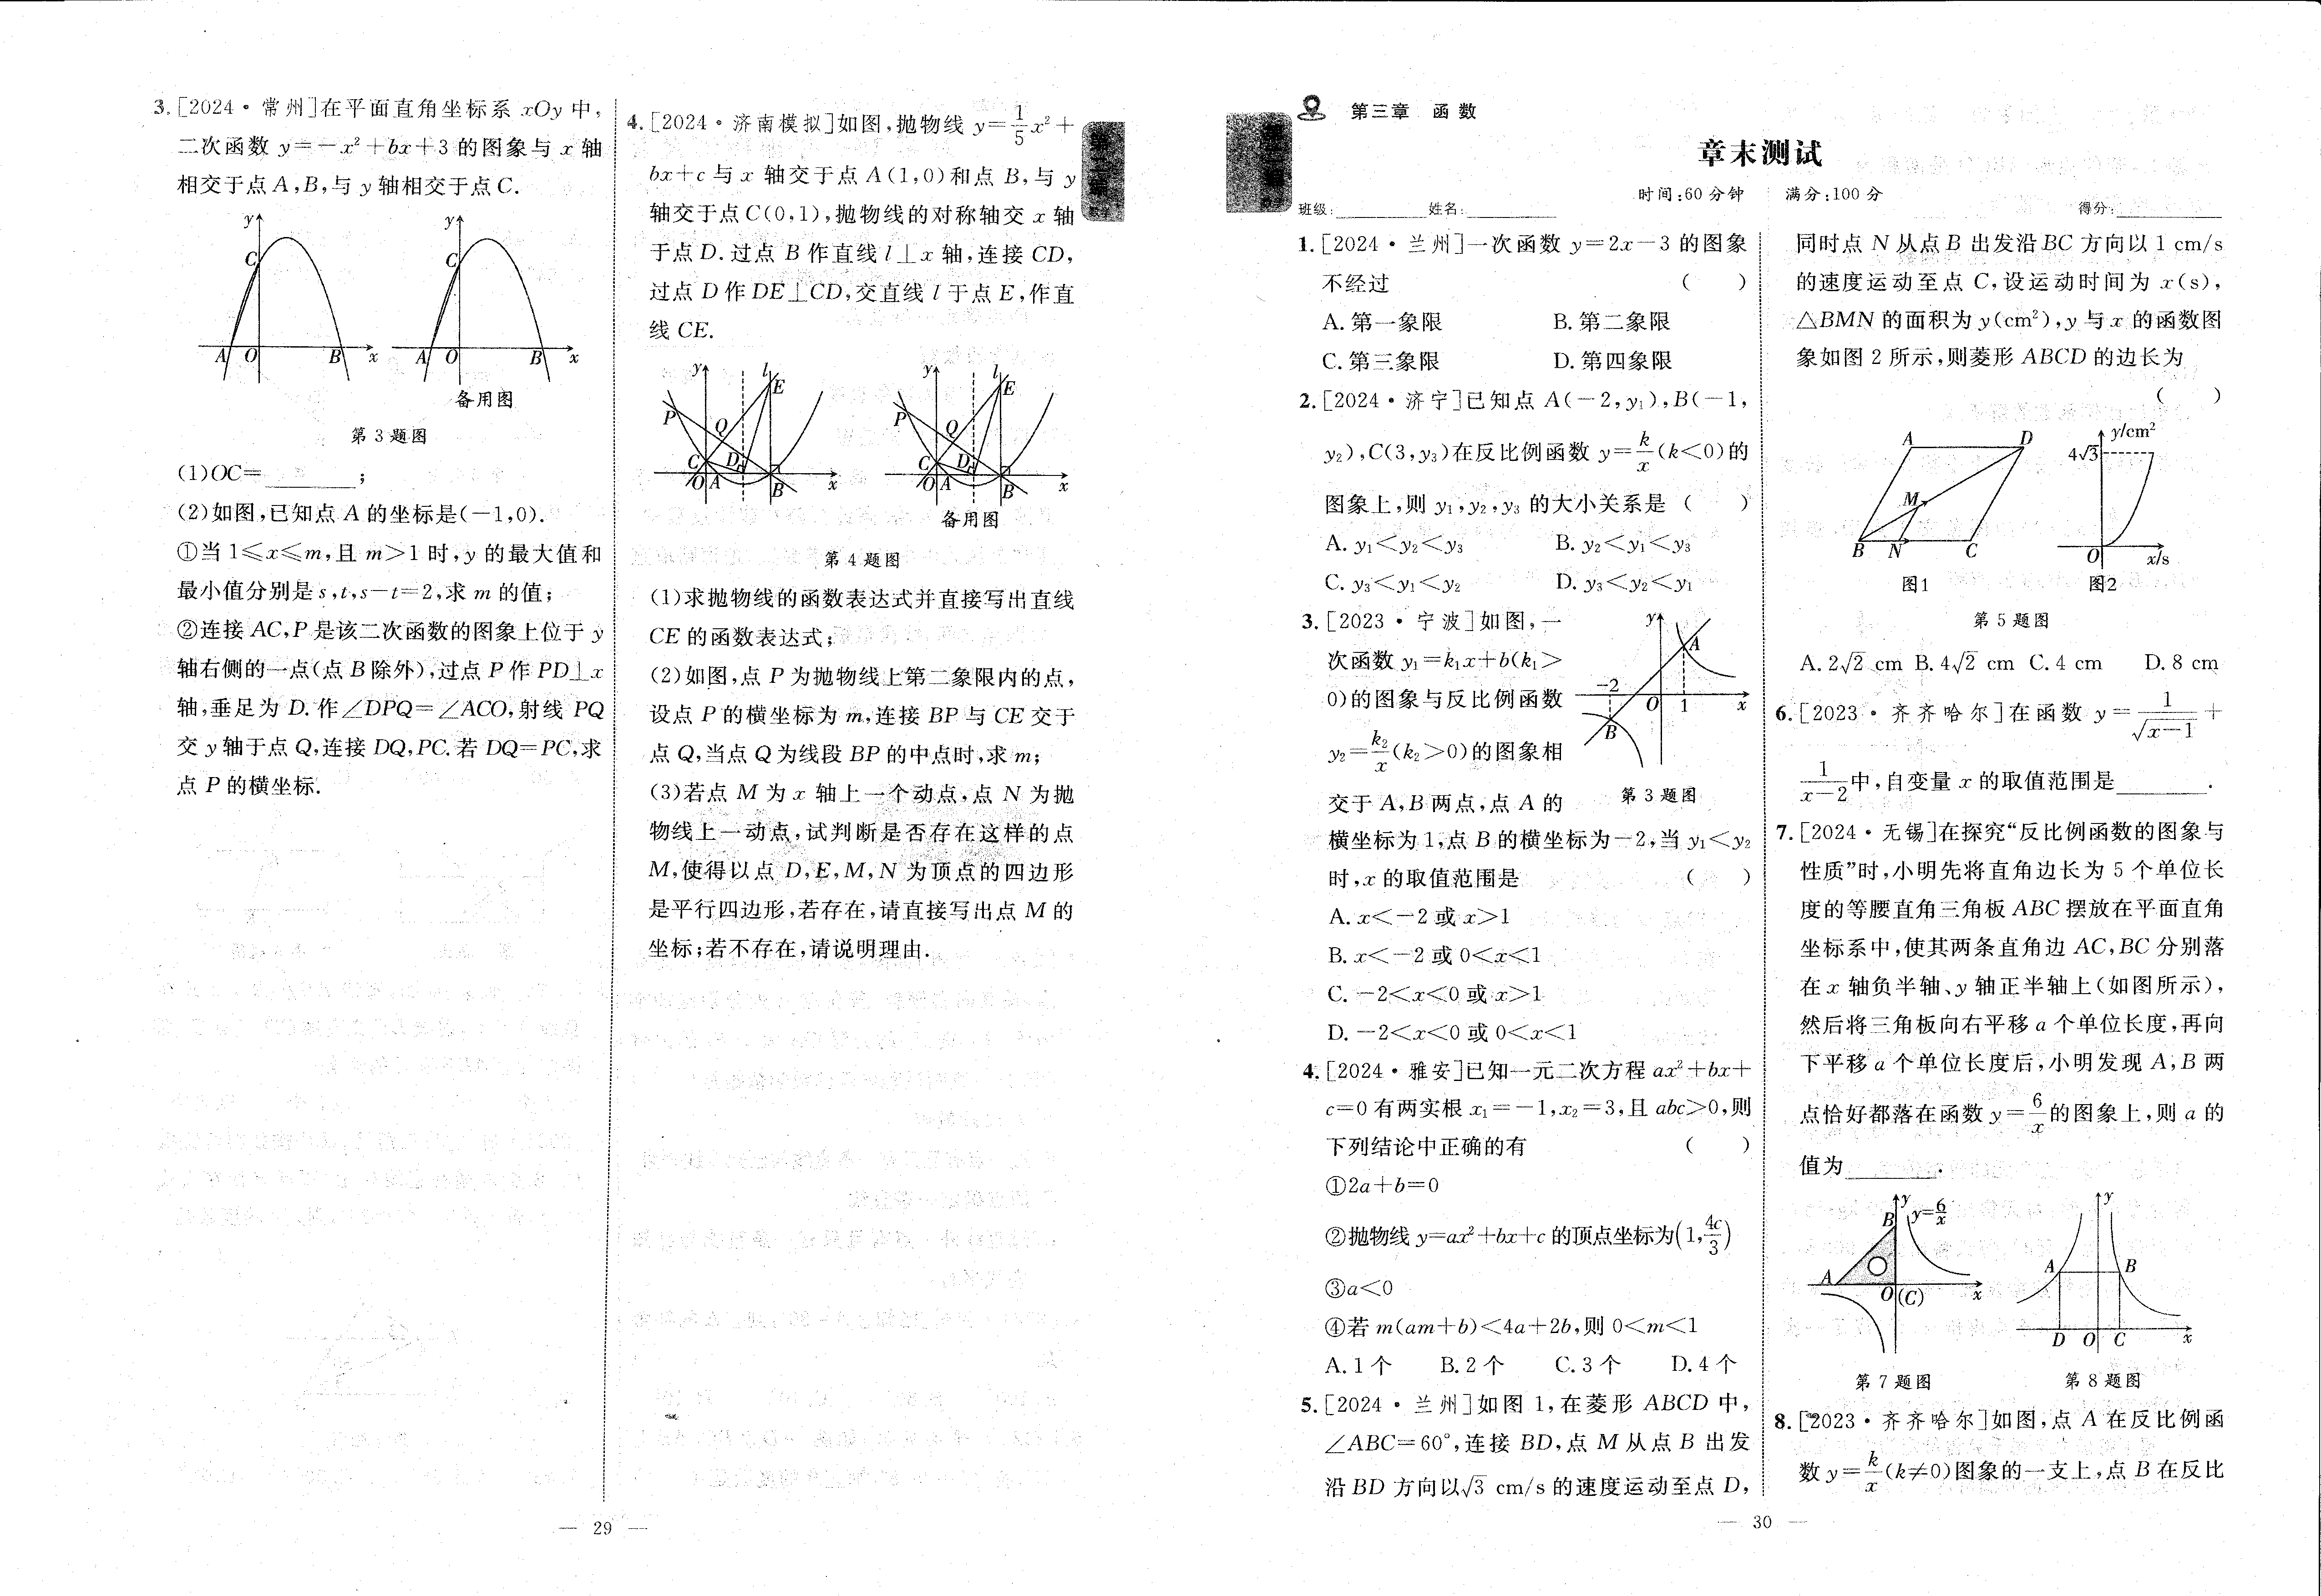 3.[2024·常州]在平面直角坐标系 xOy 中,
二次函数 y=-x²+bx+3 的图象与 x 轴
相交于点 A,B,与 y 轴相交于点 C.
y
C
A
O
B
x
y
C
A
O
B
x
备用图
第 3 题图
(1)OC=________;
(2)如图,已知点 A 的坐标是(-1,0).
①当 1≤x≤m,且 m>1 时,y 的最大值和
最小值分别是 s,t,s-t=2,求 m 的值;
②连接 AC,P 是该二次函数的图象上位于 y
轴右侧的一点(点 B 除外),过点 P 作 PD⊥x
轴,垂足为 D.作∠DPQ=∠ACO,射线 PQ
交 y 轴于点 Q,连接 DQ,PC.若 DQ=PC,求
点 P 的横坐标.
4.[2024·济南模拟]如图,抛物线 y=1/5x²+
bx+c 与 x 轴交于点 A(1,0)和点 B,与 y
轴交于点 C(0,1),抛物线的对称轴交 x 轴
于点 D.过点 B 作直线 l⊥x 轴,连接 CD,
过点 D 作 DE⊥CD,交直线 l 于点 E,作直
线 CE.
y
l
E
P
Q
C
D
O
A
B
x
y
l
E
P
Q
C
D
O
A
B
x
备用图
第 4 题图
(1)求抛物线的函数表达式并直接写出直线
CE 的函数表达式;
(2)如图,点 P 为抛物线上第二象限内的点,
设点 P 的横坐标为 m,连接 BP 与 CE 交于
点 Q,当点 Q 为线段 BP 的中点时,求 m;
(3)若点 M 为 x 轴上一个动点,点 N 为抛
物线上一动点,试判断是否存在这样的点
M,使得以点 D,E,M,N 为顶点的四边形
是平行四边形,若存在,请直接写出点 M 的
坐标;若不存在,请说明理由.
— 29 —
第三章 函数
章末测试
时间:60 分钟 满分:100 分
班级:________ 姓名:________ 得分:________
1.[2024·兰州]一次函数 y=2x-3 的图象
不经过 ( )
A.第一象限 B.第二象限
C.第三象限 D.第四象限
2.[2024·济宁]已知点 A(-2,y₁),B(-1,
y₂),C(3,y₃)在反比例函数 y=k/x(k<0)的
图象上,则 y₁,y₂,y₃ 的大小关系是 ( )
A. y₁<y₂<y₃ B. y₂<y₁<y₃
C. y₃<y₁<y₂ D. y₃<y₂<y₁
3.[2023·宁波]如图,一
次函数 y₁=k₁x+b(k₁>
0)的图象与反比例函数
y₂=k₂/x(k₂>0)的图象相
交于 A,B 两点,点 A 的
横坐标为 1,点 B 的横坐标为-2,当 y₁<y₂
时,x 的取值范围是 ( )
y
A
-2
O
1
x
B
第 3 题图
A. x<-2 或 x>1
B. x<-2 或 0<x<1
C. -2<x<0 或 x>1
D. -2<x<0 或 0<x<1
4.[2024·雅安]已知一元二次方程 ax²+bx+
c=0 有两实根 x₁=-1,x₂=3,且 abc>0,则
下列结论中正确的有 ( )
①2a+b=0
②抛物线 y=ax²+bx+c 的顶点坐标为(1,4c/3)
③a<0
④若 m(am+b)<4a+2b,则 0<m<1
A.1 个 B.2 个 C.3 个 D.4 个
5.[2024·兰州]如图 1,在菱形 ABCD 中,
∠ABC=60°,连接 BD,点 M 从点 B 出发
沿 BD 方向以√3 cm/s 的速度运动至点 D,
同时点 N 从点 B 出发沿 BC 方向以 1 cm/s
的速度运动至点 C,设运动时间为 x(s),
△BMN 的面积为 y(cm²),y 与 x 的函数图
象如图 2 所示,则菱形 ABCD 的边长为
( )
A
D
M
B
N
C
图1
y/cm²
4√3
O
x/s
图2
第 5 题图
A. 2√2 cm B. 4√2 cm C. 4 cm D. 8 cm
6.[2023·齐齐哈尔]在函数 y=1/√(x-1)+
1/(x-2)中,自变量 x 的取值范围是________.
7.[2024·无锡]在探究“反比例函数的图象与
性质”时,小明先将直角边长为 5 个单位长
度的等腰直角三角板 ABC 摆放在平面直角
坐标系中,使其两条直角边 AC,BC 分别落
在 x 轴负半轴、y 轴正半轴上(如图所示),
然后将三角板向右平移 a 个单位长度,再向
下平移 a 个单位长度后,小明发现 A,B 两
点恰好都落在函数 y=6/x的图象上,则 a 的
值为________.
y
y=6/x
B
A
O(C)
x
第 7 题图
y
A
B
D
O
C
x
第 8 题图
8.[2023·齐齐哈尔]如图,点 A 在反比例函
数 y=k/x(k≠0)图象的一支上,点 B 在反比
— 30 —